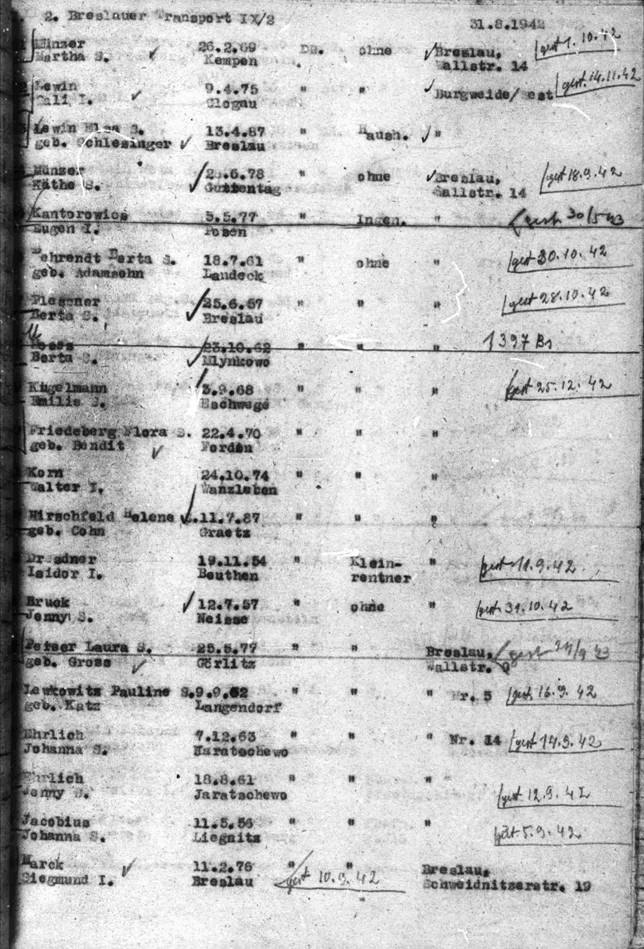 2. Breslauer Transport IX/2 31.8.1942
Münzer 26.2.69 Ds. ohne Breslau, gest 1.10.42
Martha S. Kempen Wallstr. 14
Lewin 9.4.75 " " Burgweide/ gest. 14.11.42
Cali I. Glogau
Lewin Elsa S. 13.4.87 " Haush. "
geb. Schlesinger Breslau
Münzer 25.6.78 " ohne Breslau, gest 18.9.42
Käthe S. Guttentag Wallstr. 14
Kantorowicz 5.5.77 " Ingen. " gest 30/5 43
Eugen I. Posen
Behrendt Berta S. 18.7.61 " ohne " gest 30.10.42
geb. Adamsohn Landeck
Plessner 25.6.67 " " " gest 28.10.42
Berta S. Breslau
23.10.62 " " " 1397 Br
Berta S. Mlynkowo
Kugelmann 3.9.68 " " " gest 25.12.42
Emilie S. Eschwege
Friedeberg Flora S. 22.4.70 " " "
geb. Bendit Fordon
Korn 24.10.74 " " "
Walter I. Wanzleben
Hirschfeld Helene S. 11.7.87 " " "
geb. Cohn Graetz
Dresdner 19.11.54 " Klein- " gest 11.9.42
Isidor I. Beuthen rentner
Bruck 12.7.57 " ohne " gest 31.10.42
Jenny S. Neisse
Peiser Laura S. 25.5.77 " " Breslau, gest 24/9 43
geb. Gross Görlitz Wallstr. 9
Lewkowitz Pauline S. 9.9.62 " " " Nr. 5 gest 16.9.42
geb. Katz Langendorf
Ehrlich 7.12.63 " " " Nr. 14 gest 14.9.42
Johanna S. Jaratschewo
Ehrlich 18.8.61 " " " gest 12.9.42
Jenny S. Jaratschewo
Jacobius 11.5.56 " " " gest 5.9.42
Johanna S. Liegnitz
Marck 11.2.76 " " gest 10.9.42 Breslau,
Siegmund I. Breslau Schweidnitzerstr. 19